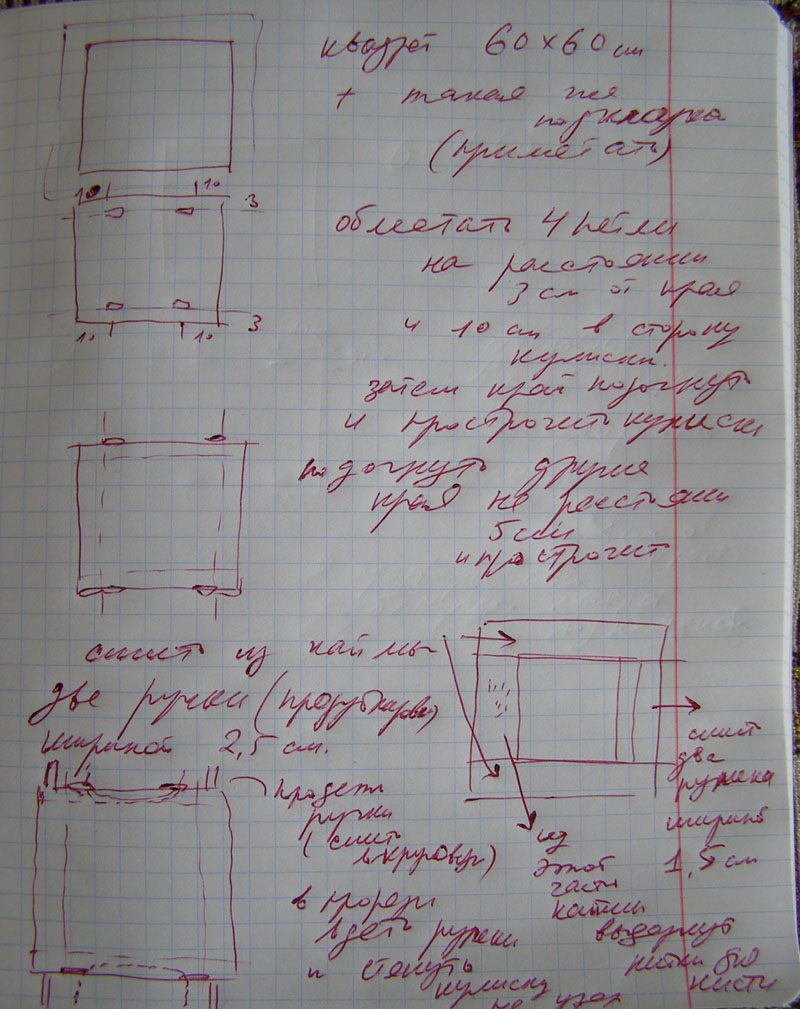 квадрат 60 × 60 см
+ такая же
подкладка
(приметать)
10 10 3
обметать 4 петли
на расстоянии
3 см от края
и 10 см в сторону
кулиски.
10 10 3
затем край подогнуть
и прострочить кулиски
подогнуть другие
края на расстоянии
5 см
и прострочить
сшить из каймы
две ручки (продублировать)
шириной 2,5 см.
сшить
два
ручейка
шириной
1,5 см
продеть
ручки
(сшить
вкруговую)
из
этой
части
каймы
в прорези
вдеть ручки
и стянуть
кулиску
на узел
выдернуть
нитки
кисти